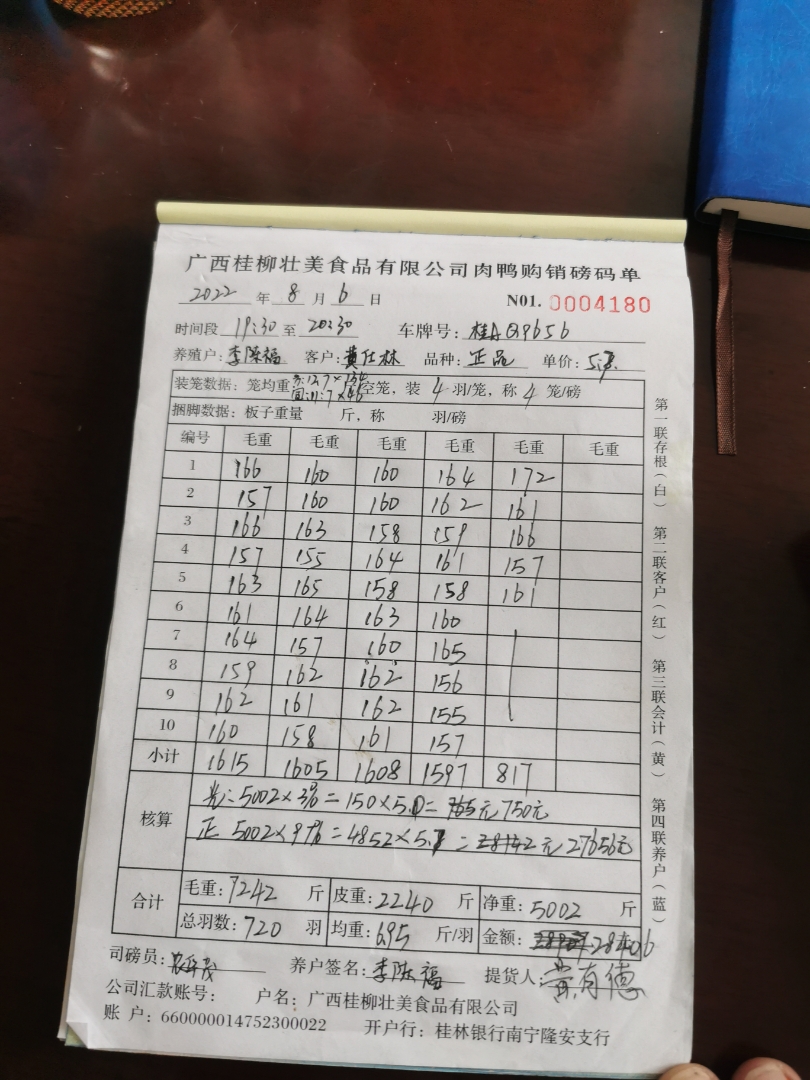 广西桂柳壮美食品有限公司肉鸭购销磅码单
2022 年 8 月 6 日 N01. 0004180
时间段 19:30 至 20:30 车牌号: 桂A Q9656
养殖户: 李陈福 客户: 黄仕林 品种: 正品 单价:
装笼数据: 笼均重 空笼, 装 4 羽/笼, 称 4 笼/磅
捆脚数据: 板子重量 斤, 称 羽/磅
编号 毛重 毛重 毛重 毛重 毛重 毛重
1 166 160 160 164 172
2 157 160 160 162 161
3 166 163 158 159 166
4 157 155 164 161 157
5 163 165 158 158 161
6 161 164 163 160
7 164 157 160 165
8 159 162 162 156
9 162 161 162 155
10 160 158 161 157
小计 1615 1605 1608 1597 817
核算
5002×3%=150×5.0= 765元 750元
正 5002×97%=4852×5.7= 元 27656元
合计
毛重: 7242 斤 皮重: 2240 斤 净重: 5002 斤
总羽数: 720 羽 均重: 6.95 斤/羽 金额: 28406
司磅员: 养户签名: 李陈福 提货人: 黄有德
公司汇款账号: 户名: 广西桂柳壮美食品有限公司
账 户: 660000014752300022 开户行: 桂林银行南宁隆安支行
第一联存根(白) 第二联客户(红) 第三联会计(黄) 第四联养户(蓝)